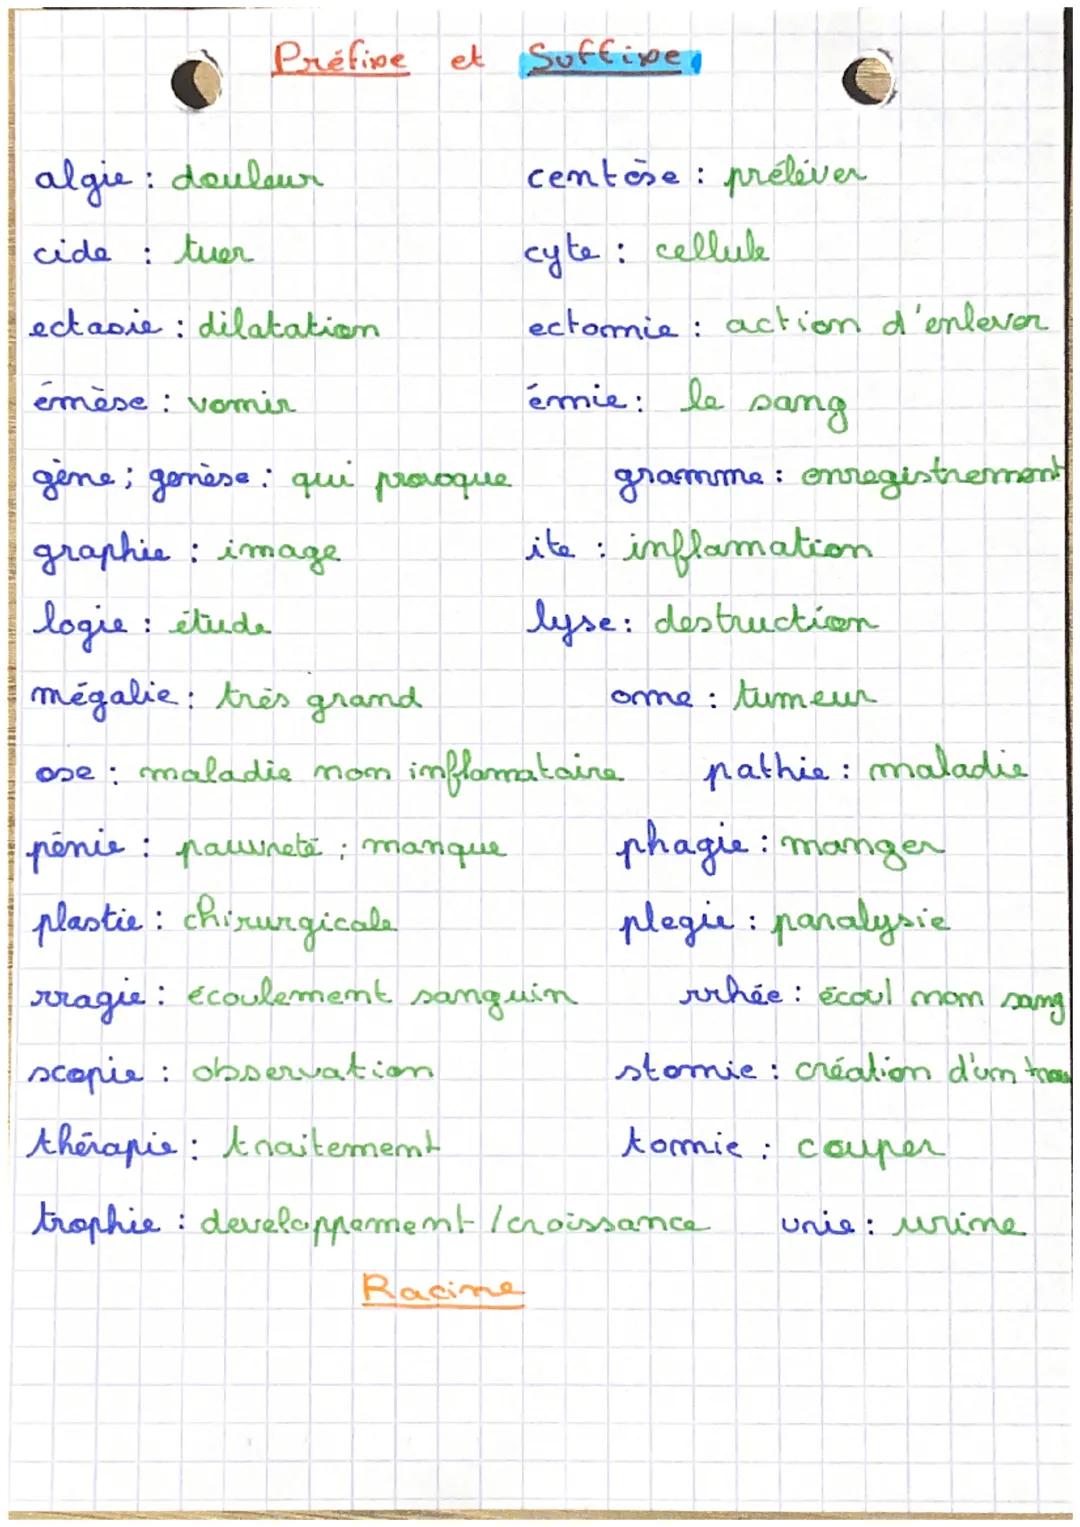 Préfixe et Suffixe
algie : douleur centèse : préléver
cide : tuer cyte : cellule
ectasie : dilatation ectomie : action d'enlever
émèse : vomir émie : le sang
gène ; genèse : qui provoque gramme : enregistrement
graphie : image ite : inflamation
logie : étude lyse : destruction
mégalie : très grand ome : tumeur
ose : maladie non inflamataire pathie : maladie
pénie : pauvreté ; manque phagie : manger
plastie : chirurgicale plegie : paralysie
rragie : écoulement sanguin rrhée : écoul non sang
scopie : observation stomie : création d'un trou
thérapie : traitement tomie : couper
trophie : developpement / croissance urie : urine
Racine